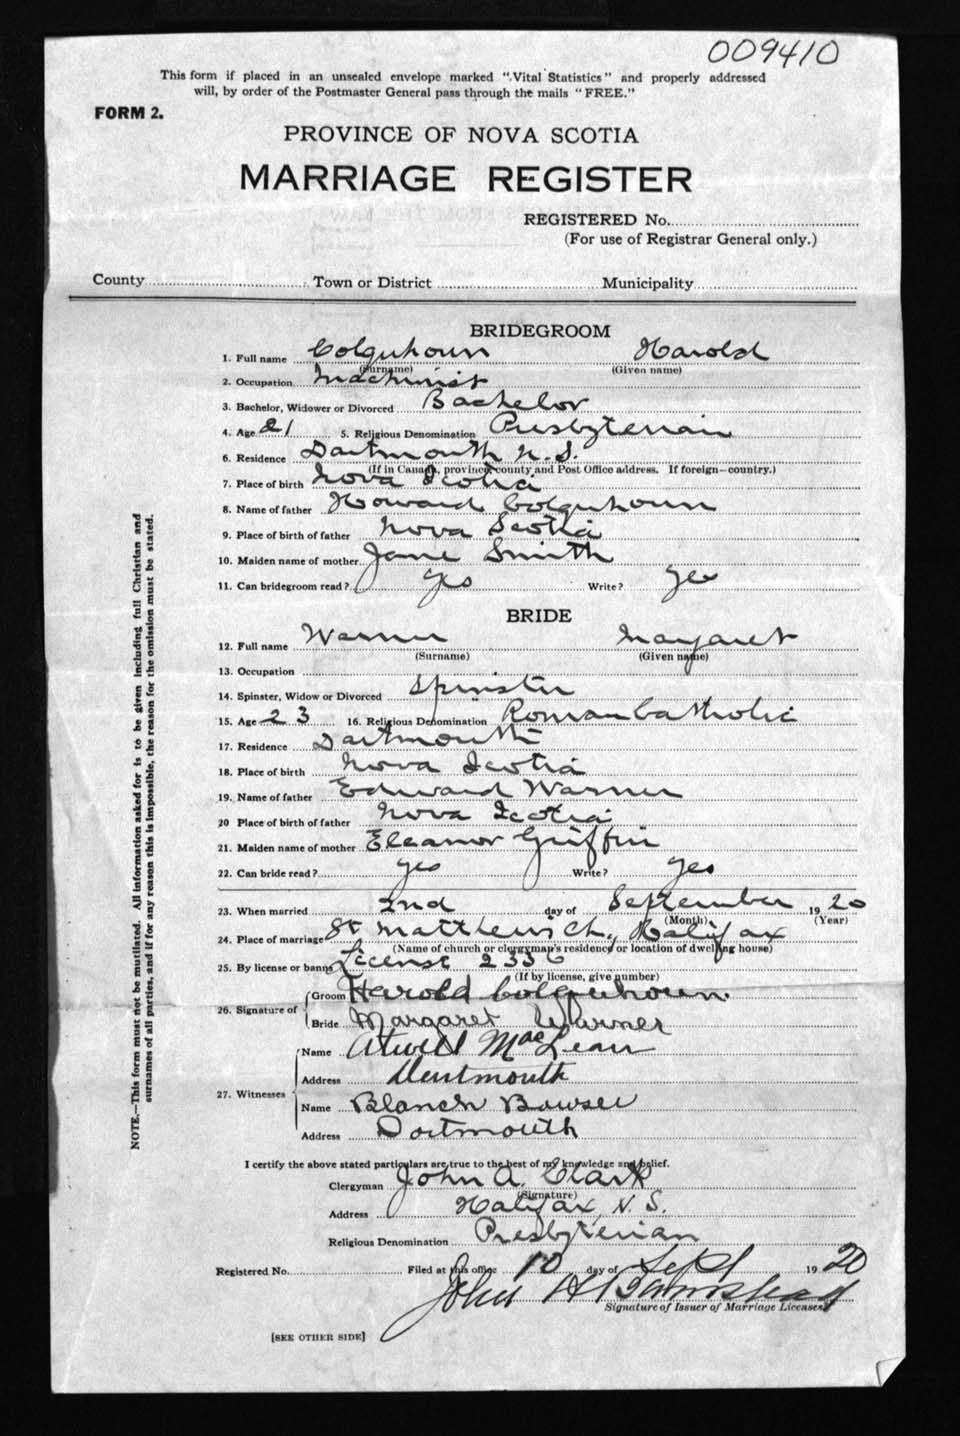 009410
This form if placed in an unsealed envelope marked "Vital Statistics" and properly addressed
will, by order of the Postmaster General pass through the mails "FREE."
FORM 2.
PROVINCE OF NOVA SCOTIA
MARRIAGE REGISTER
REGISTERED No.
(For use of Registrar General only.)
County Town or District Municipality
BRIDEGROOM
1. Full name Colquhoun Harold
(Surname) (Given name)
2. Occupation Machinist
3. Bachelor, Widower or Divorced Bachelor
4. Age 21 5. Religious Denomination Presbyterian
6. Residence Dartmouth N.S.
(If in Canada, province, county and Post Office address. If foreign—country.)
7. Place of birth Nova Scotia
8. Name of father Howard Colquhoun
9. Place of birth of father Nova Scotia
10. Maiden name of mother Jane Smith
11. Can bridegroom read? Yes Write? Yes
BRIDE
12. Full name Warner Margaret
(Surname) (Given name)
13. Occupation
14. Spinster, Widow or Divorced Spinster
15. Age 23 16. Religious Denomination Roman Catholic
17. Residence Dartmouth
18. Place of birth Nova Scotia
19. Name of father Edward Warner
20 Place of birth of father Nova Scotia
21. Maiden name of mother Eleanor Griffin
22. Can bride read? Yes Write? Yes
23. When married 2nd day of September 1920
(Month) (Year)
24. Place of marriage St Matthew's Ch., Halifax
(Name of church or clergyman's residence or location of dwelling house)
25. By license or banns License 2336
(If by license, give number)
26. Signature of
Groom Harold Colquhoun
Bride Margaret Warner
27. Witnesses
Name Atwell MacLean
Address Dartmouth
Name Blanch Bowser
Address Dartmouth
I certify the above stated particulars are true to the best of my knowledge and belief.
Clergyman John A. Clark
(Signature)
Address Halifax, N.S.
Religious Denomination Presbyterian
Registered No. Filed at this office 10 day of Sept 1920
John H
Signature of Issuer of Marriage Licenses
[SEE OTHER SIDE]
NOTE.—This form must not be mutilated. All information asked for is to be given including full Christian and
surnames of all parties, and if for any reason this is impossible, the reason for the omission must be stated.